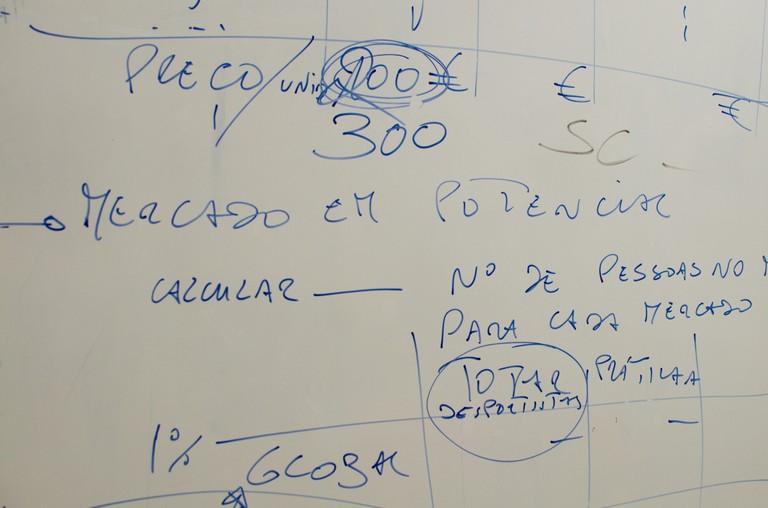 PREÇO/UNID. 100 € € €
300 SC
MERCADO EM POTENCIAL
CALCULAR — Nº DE PESSOAS NO
PARA CADA MERCADO
TOTAL PRÁTICA
DESPORTISTAS
1% — —
GLOBAL